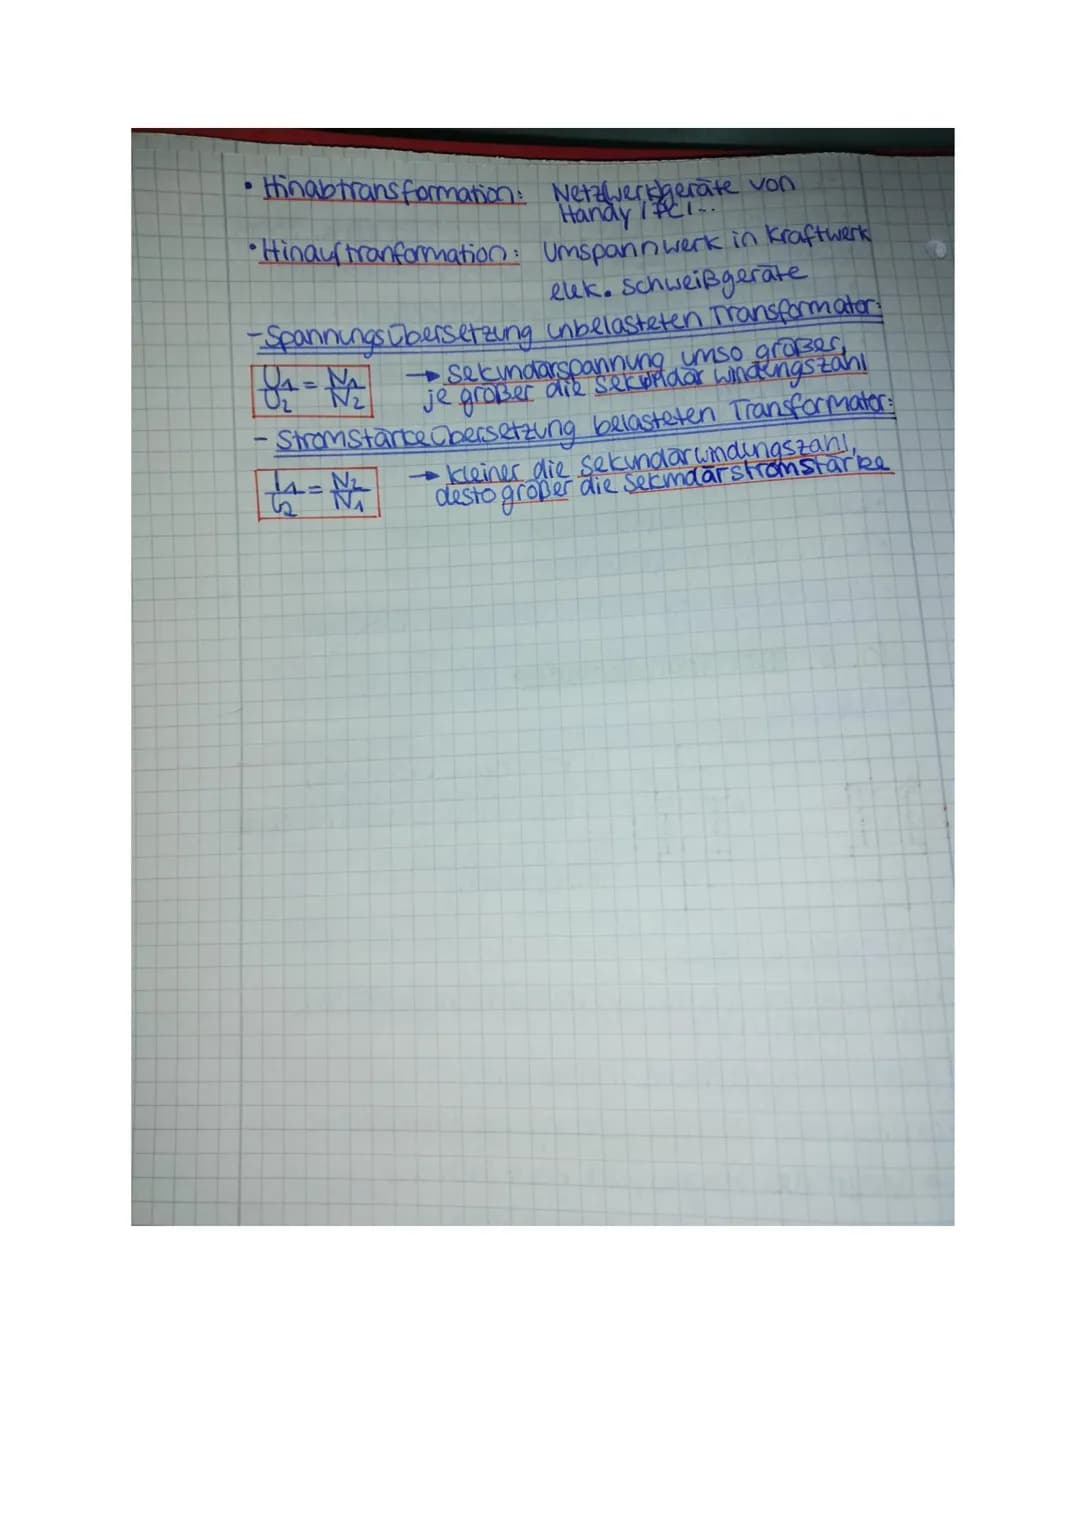 • Hinabtransformation: Netzwerkgeräte von
Handy / PC / ...
• Hinauftranformation: Umspannwerk in Kraftwerk
elek. Schweißgeräte
- Spannungsübersetzung unbelasteten Transformator:
U1/U2 = N1/N2 → Sekundärspannung umso größer,
je größer die Sekundär windungszahl
- Stromstärkeübersetzung belasteten Transformator:
I1/I2 = N2/N1 → kleiner die Sekundärwindungszahl,
desto größer die Sekundärstromstärke